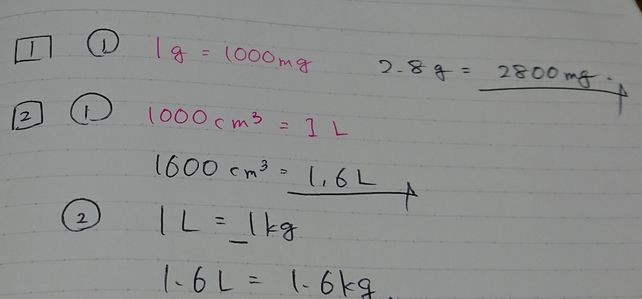 1 ① 1g = 1000mg 2.8g = 2800mg.
2 ① 1000cm³ = 1L
1600cm³ = 1.6L
② 1L = 1kg
1.6L = 1.6kg.